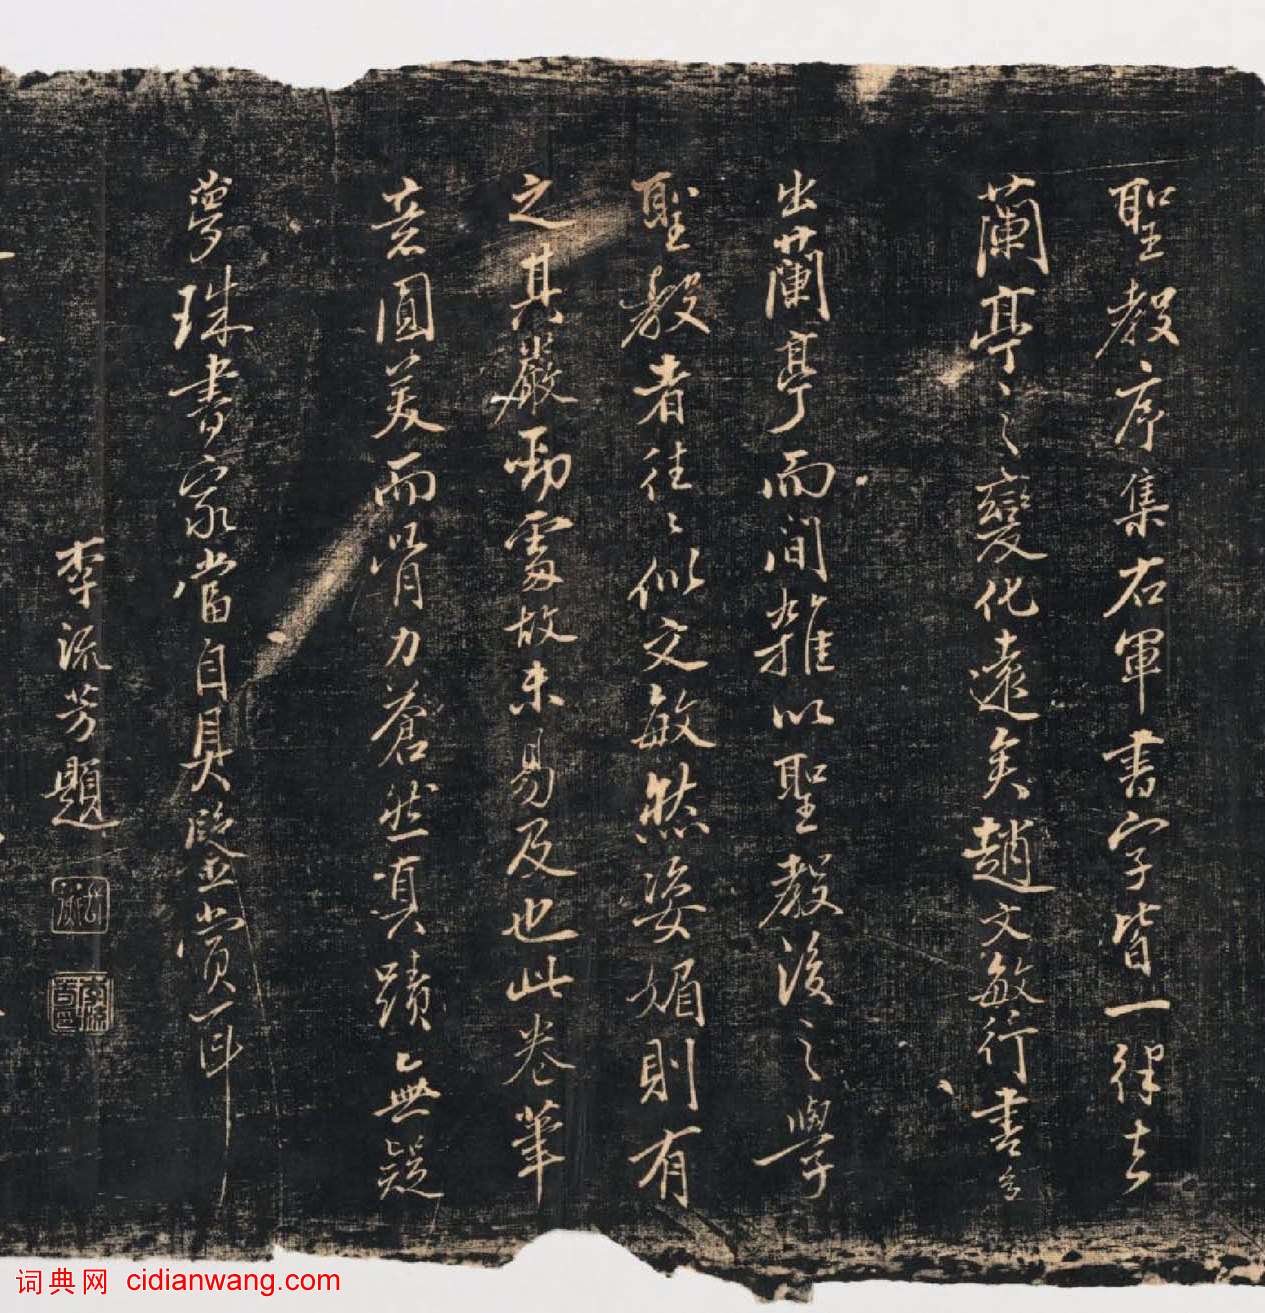 聖教序集右軍書字皆一律去
蘭亭之變化遠矣趙文敏行書多
出蘭亭而間雜以聖教後之學
聖教者往往似文敏然姿媚則有
之其嚴勁處故未易及也此卷筆
意圓美而骨力蒼然真蹟無疑
夢珠書家當自具鑒賞耳
李流芳題
词典网 cidianwang.com